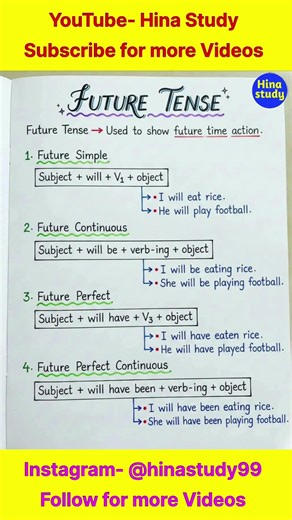 YouTube- Hina Study
Subscribe for more Videos
Hina
study
FUTURE TENSE
Future Tense → Used to show future time action.
1. Future Simple
Subject + will + V₁ + object
→ • I will eat rice.
→ • He will play football.
2. Future Continuous
Subject + will be + verb-ing + object
→ • I will be eating rice.
→ • She will be playing football.
3. Future Perfect
Subject + will have + V₃ + object
→ • I will have eaten rice.
→ • He will have played football.
4. Future Perfect Continuous
Subject + will have been + verb-ing + object
→ • I will have been eating rice.
→ • She will have been playing football.
Instagram- @hinastudy99
Follow for more Videos